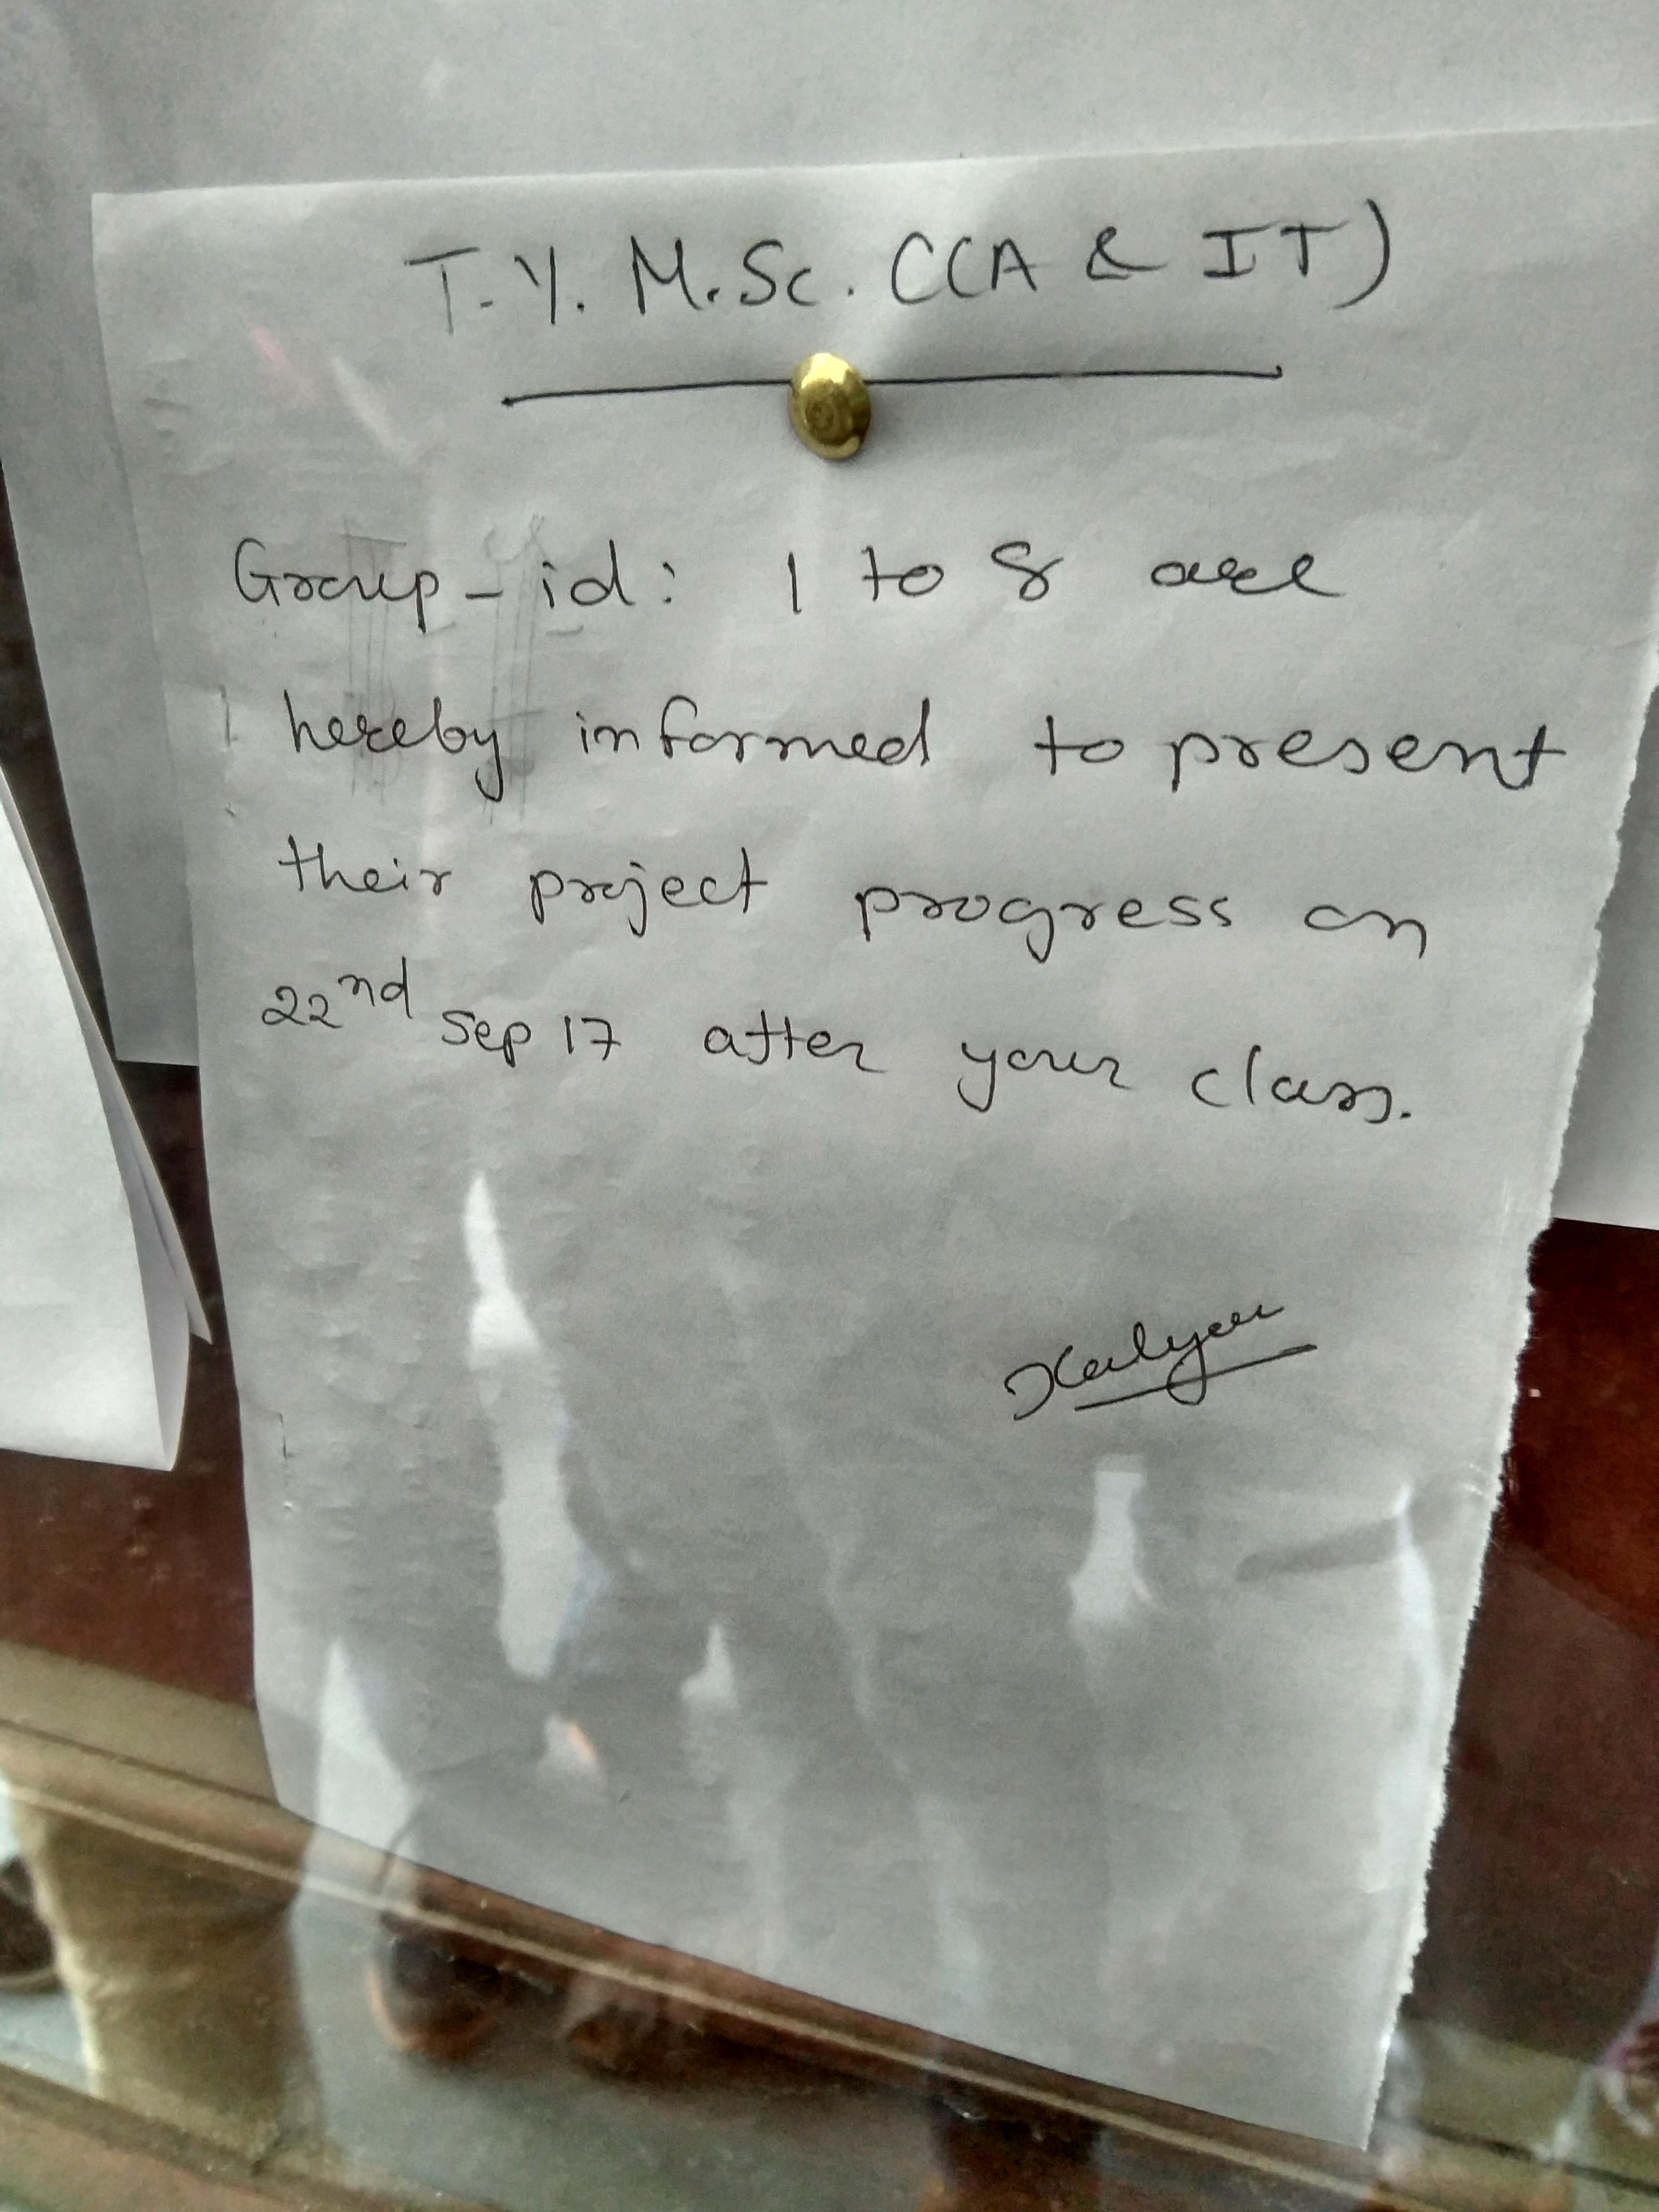 T.Y. M.Sc. (CA & IT)
Group-id: 1 to 8 are
hereby informed to present
their project progress on
22nd Sep 17 after your class.
Kalyan